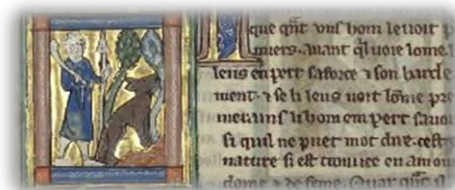 que qñt uns hom le uoit p
miers. auant ql uoie lome.
leus en pert sa force ⁊ son harde
ment. ⁊ se li leus uoit lōme pre
merains li hom em pert sa uoi
si quil ne puet mot dire. cest
nature si est trouuee en amou
dome ⁊ de feme. Quar qñt il